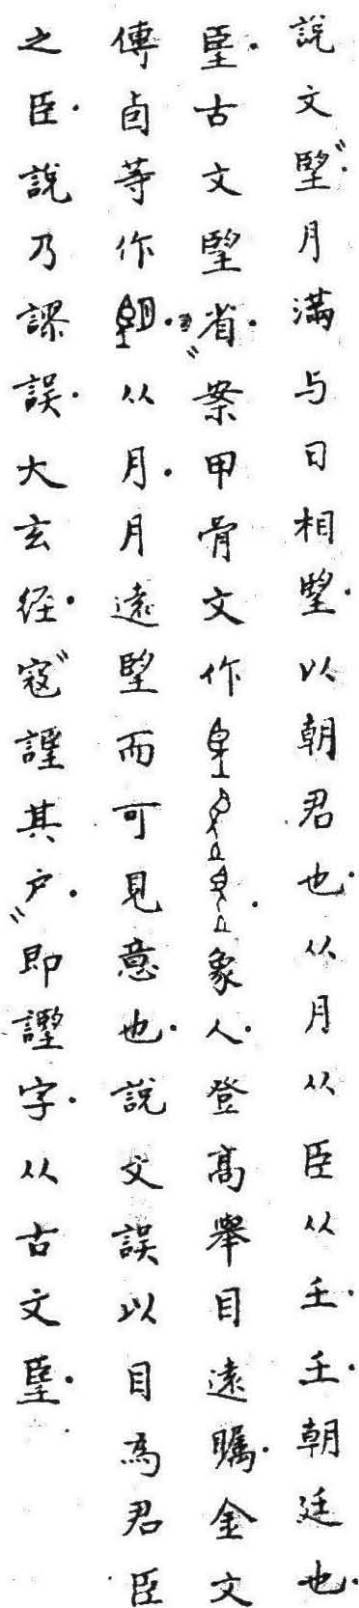 説文〝朢．月滿与日相朢．以朝君也．从月从臣从𡈼．𡈼朝廷也．
𦣠．古文朢省．〞案甲骨文作象人．登高舉目遠矚．金文
傳卣等作从月．月遠朢而可見意也．說文誤以目為君臣
之臣．說乃謬誤．大玄経．〝寇𧫢其户．〞即謹字．从古文𦣠．